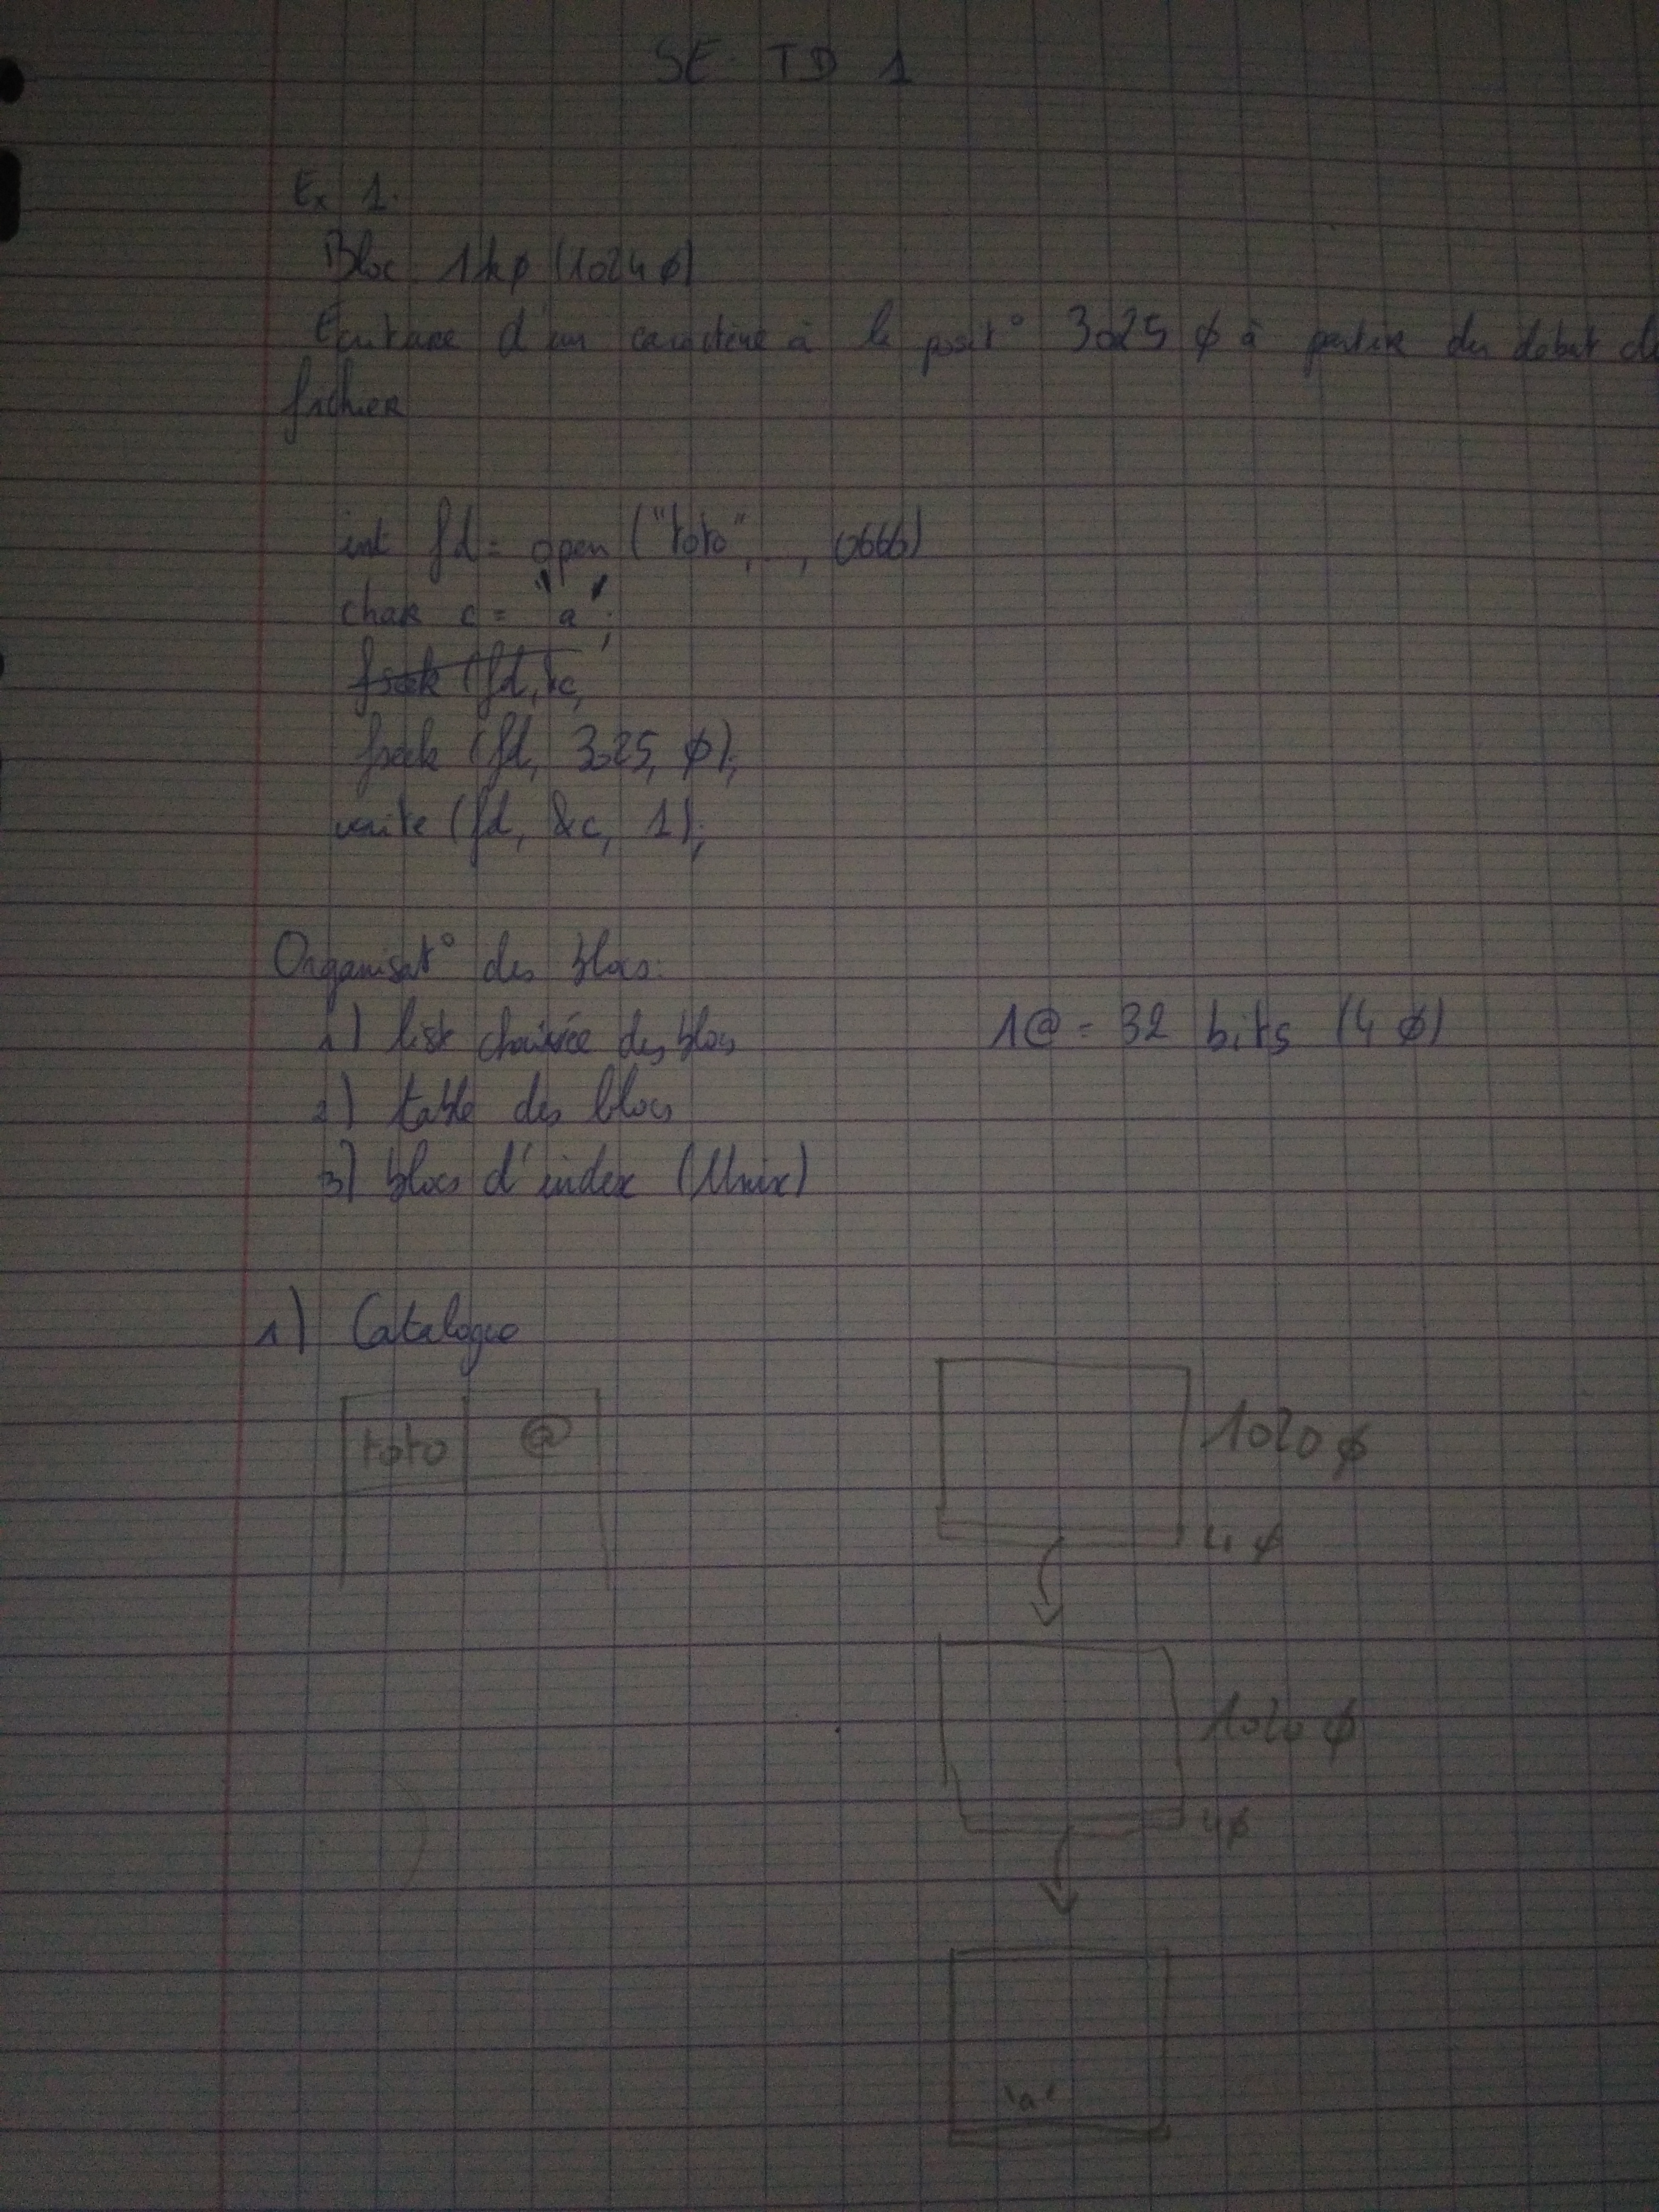 SE TD 1
Ex 1.
Bloc 1kø (1024 ø)
Ecriture d'un caractère à la posit° 3025 ø à partir du début d
fichier
int fd = open ("toto", , 0666)
char c = 'a';
fseek (fd, &c,
fseek (fd, 3025, ø);
write (fd, &c, 1);
Organisat° des blocs:
1) liste chainée des blocs 1@ = 32 bits (4 ø)
2) table des blocs
3) blocs d'index (Unix)
1) Catalogue
toto @
1020 ø
4 ø
1020 ø
4 ø
'a'